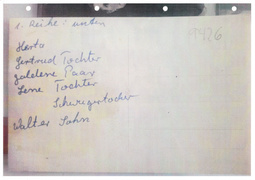 1. Reihe: unten
Herta
Gertrud Tochter
goldene Paar
Lene Tochter
Schwiegertochter
Walter Sohn